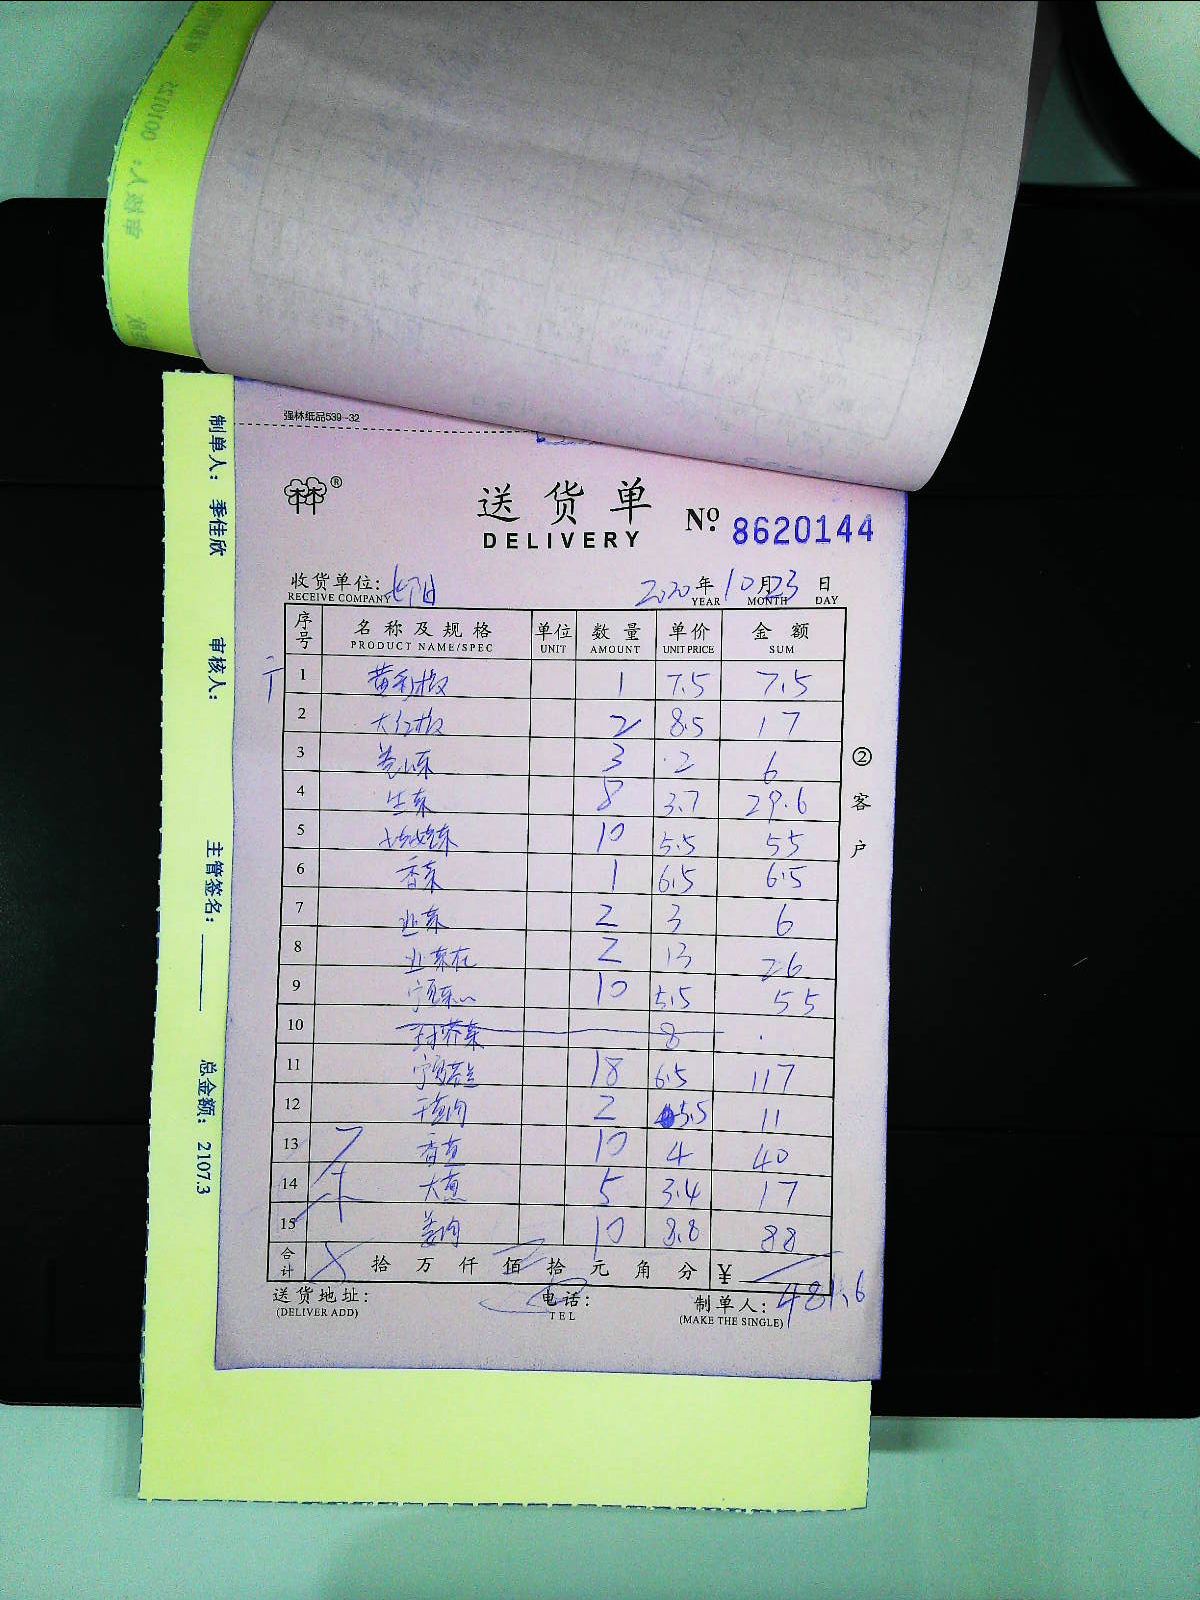 强林纸品539-32
林林®
送货单
DELIVERY
No. 8620144
收货单位:
RECEIVE COMPANY
2020年10月23日
YEAR MONTH DAY
序号 名称及规格 单位 数量 单价 金额
PRODUCT NAME/SPEC UNIT AMOUNT UNIT PRICE SUM
1 黄彩椒 1 7.5 7.5
2 大红椒 2 8.5 17
3 3 2 6
4 生菜 8 3.7 29.6
5 10 5.5 55
6 香菜 1 6.5 6.5
7 韭菜 2 3 6
8 2 13 26
9 10 5.5 55
10 8
11 18 6.5 117
12 2 5.5 11
13 香葱 10 4 40
14 大葱 5 3.4 17
15 姜肉 10 8.8 88
合计 拾万仟佰拾元角分 ¥
481.6
送货地址:
(DELIVER ADD)
电话:
TEL
制单人:
(MAKE THE SINGLE)
②客户
制单人: 季佳欣
审核人:
主管签名:
总金额: 2107.3